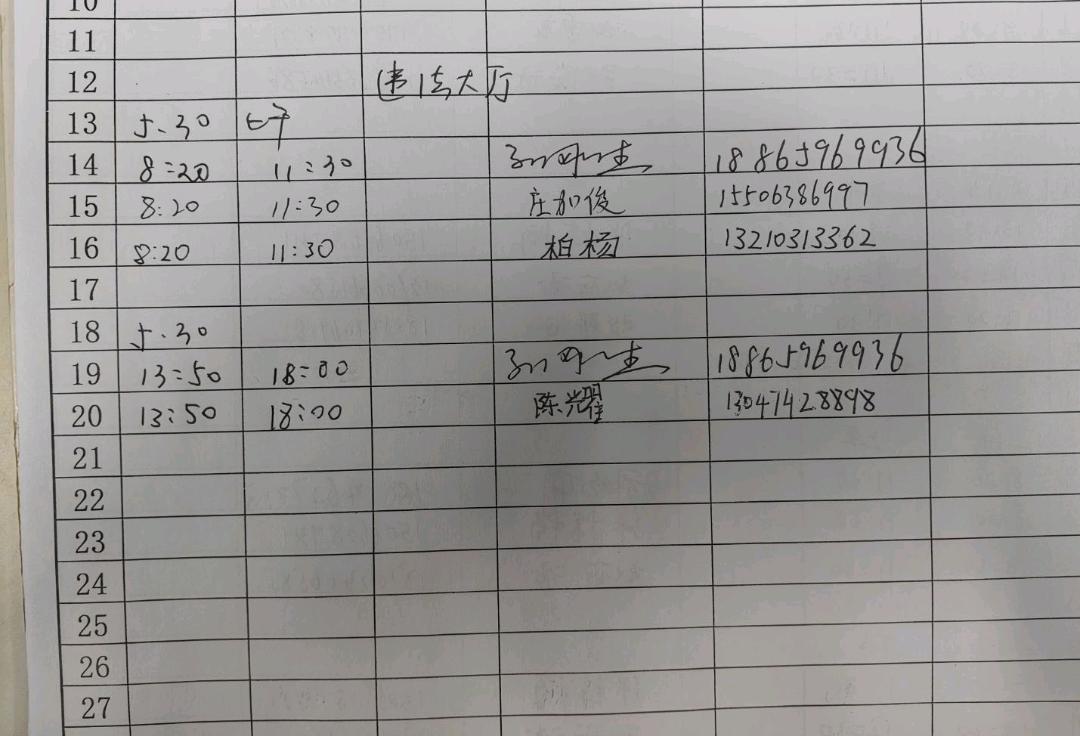 10
11
12 违法大厅
13 5.30 上午
14 8:20 11:30 18865969936
15 8:20 11:30 庄加俊 15506386997
16 8:20 11:30 柏杨 13210313362
17
18 5.30
19 13:50 18:00 18865969936
20 13:50 18:00 陈耀 13047428898
21
22
23
24
25
26
27